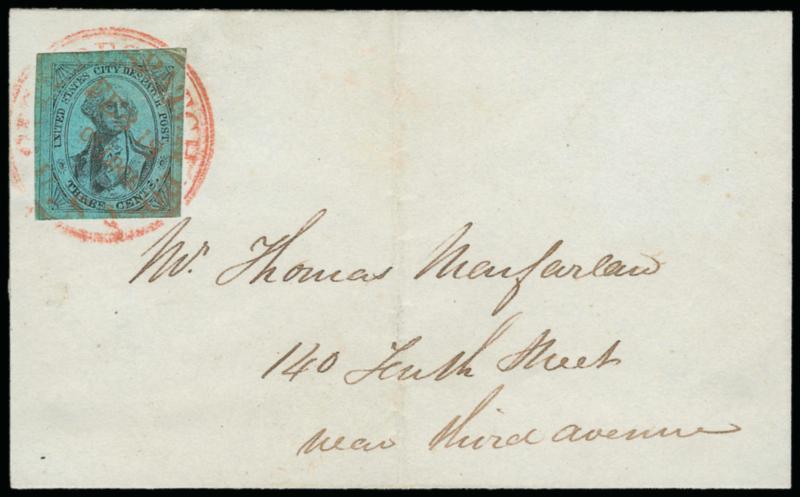 UNITED STATES CITY DESPATCH POST.
THREE CENTS.
Mr. Thomas Macfarlan
140 Tenth Street
near third avenue